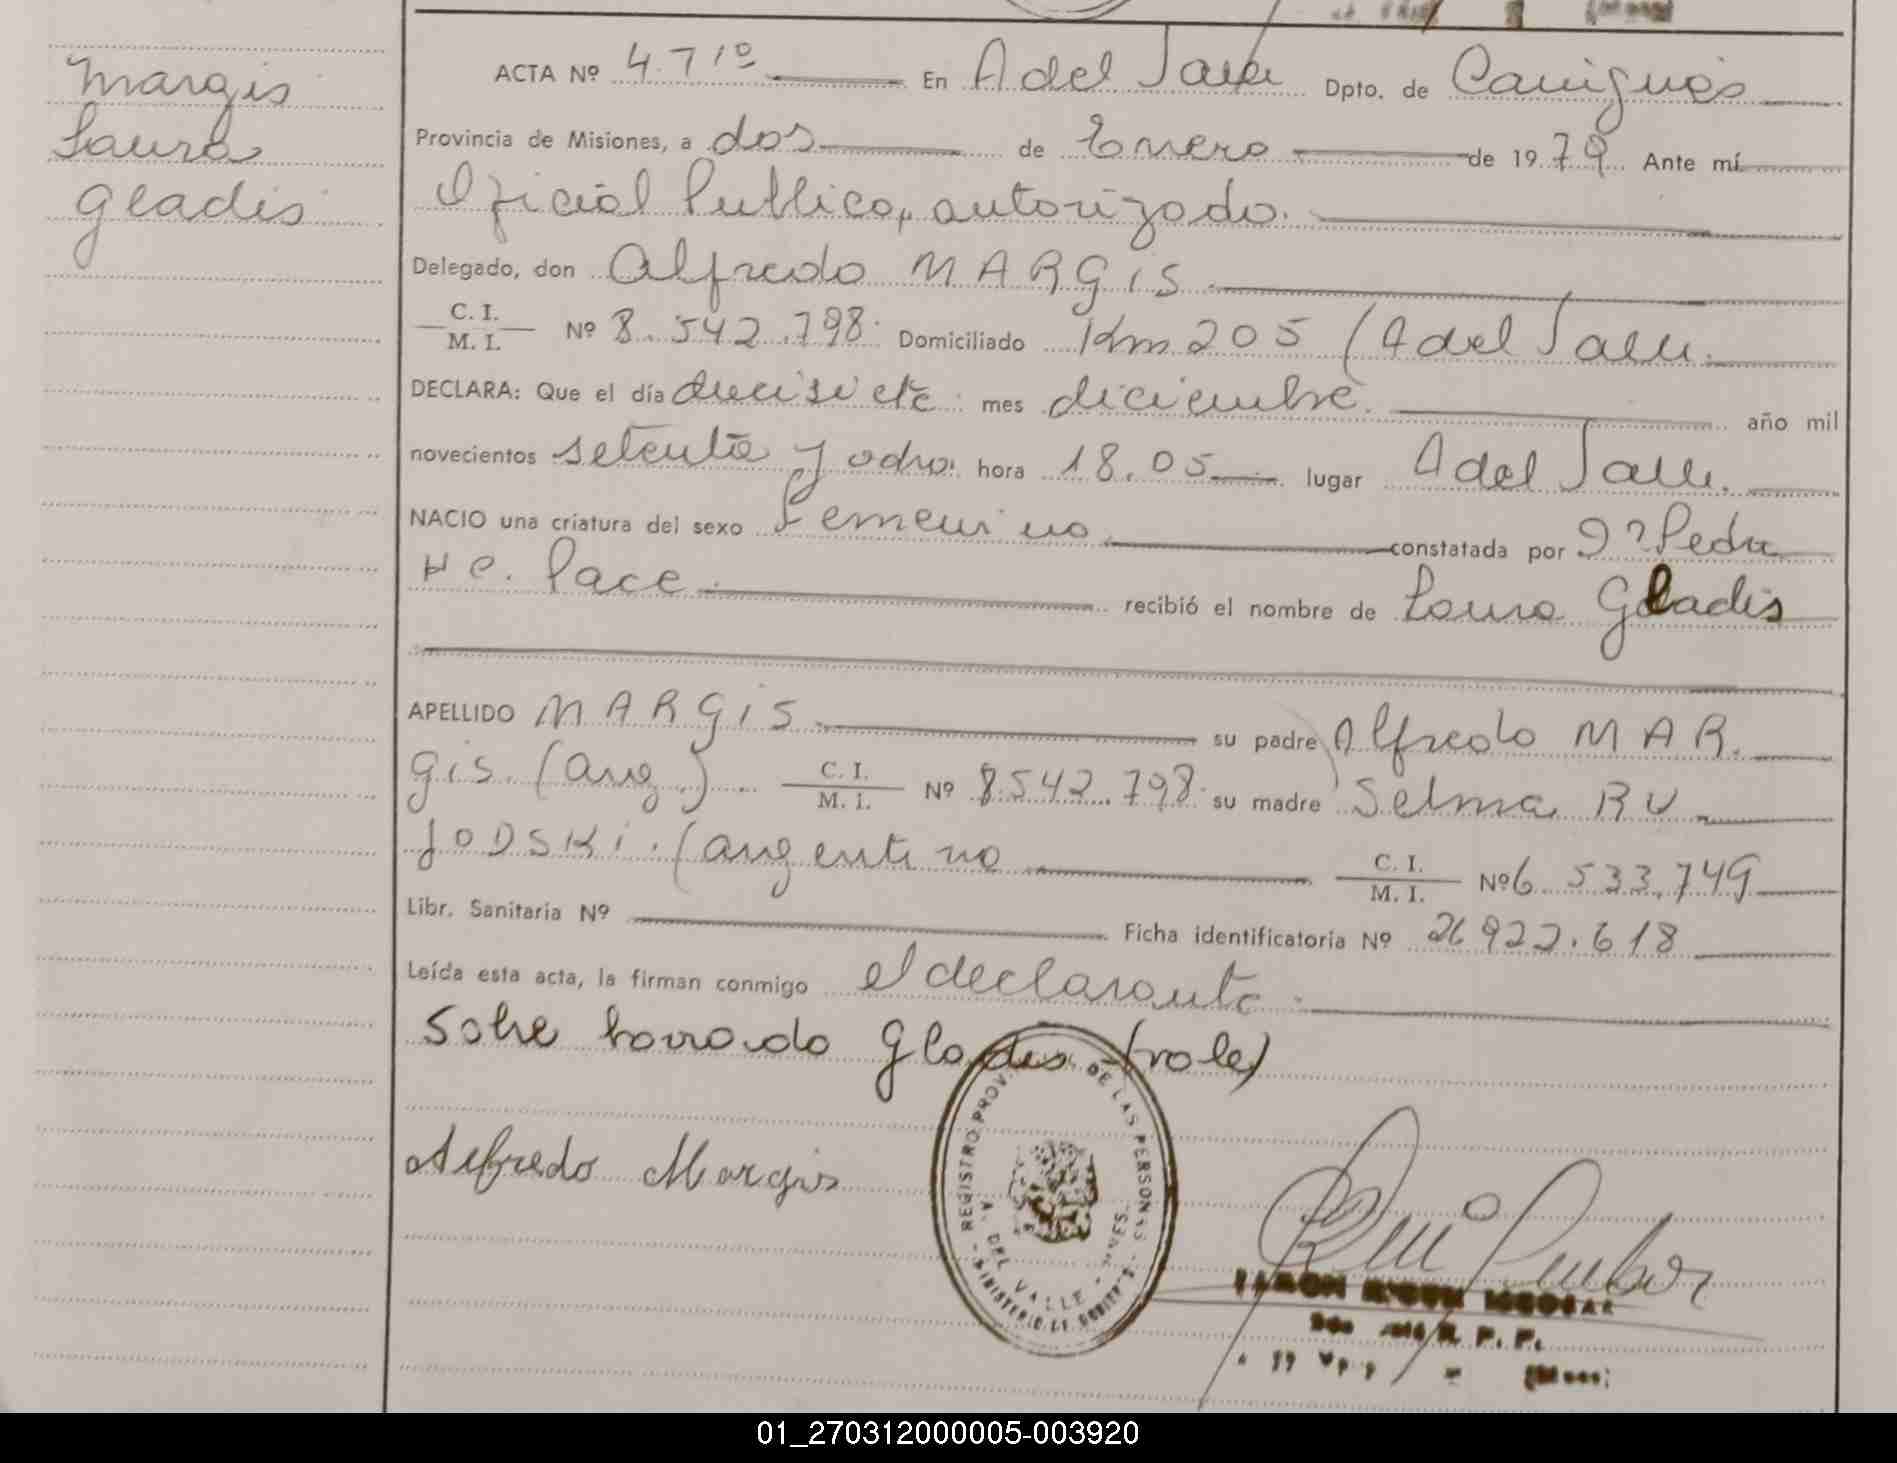 Margis
Laura
Gladis
ACTA Nº 471º En A del Valle Dpto. de Cainguás
Provincia de Misiones, a dos de Enero de 1979 Ante mí
Oficial Publico, autorizado.
Delegado, don Alfredo MARGIS
C. I.
M. I. Nº 8.542.798. Domiciliado Km 205 (A del Valle.
DECLARA: Que el día diecisiete mes diciembre. año mil
novecientos setenta y ocho. hora 18.05 lugar A del Valle.
NACIO una criatura del sexo Femenino constatada por Pedro
H C. Pace. recibió el nombre de Laura Gladis
APELLIDO MARGIS su padre Alfredo MAR
GIS. (Arg.) C. I.
M. I. Nº 8.542.798. su madre Selma RU
JODSKI. (argentino C. I.
M. I. Nº 6.533.749
Libr. Sanitaria Nº Ficha identificatoria Nº 26922.618
Leída esta acta, la firman conmigo el declarante.
Sobre borrado Gladis (vale)
Alfredo Margis
REGISTRO PROV. DE LAS PERSONAS
A. DEL VALLE
R. P. P.
01_270312000005-003920